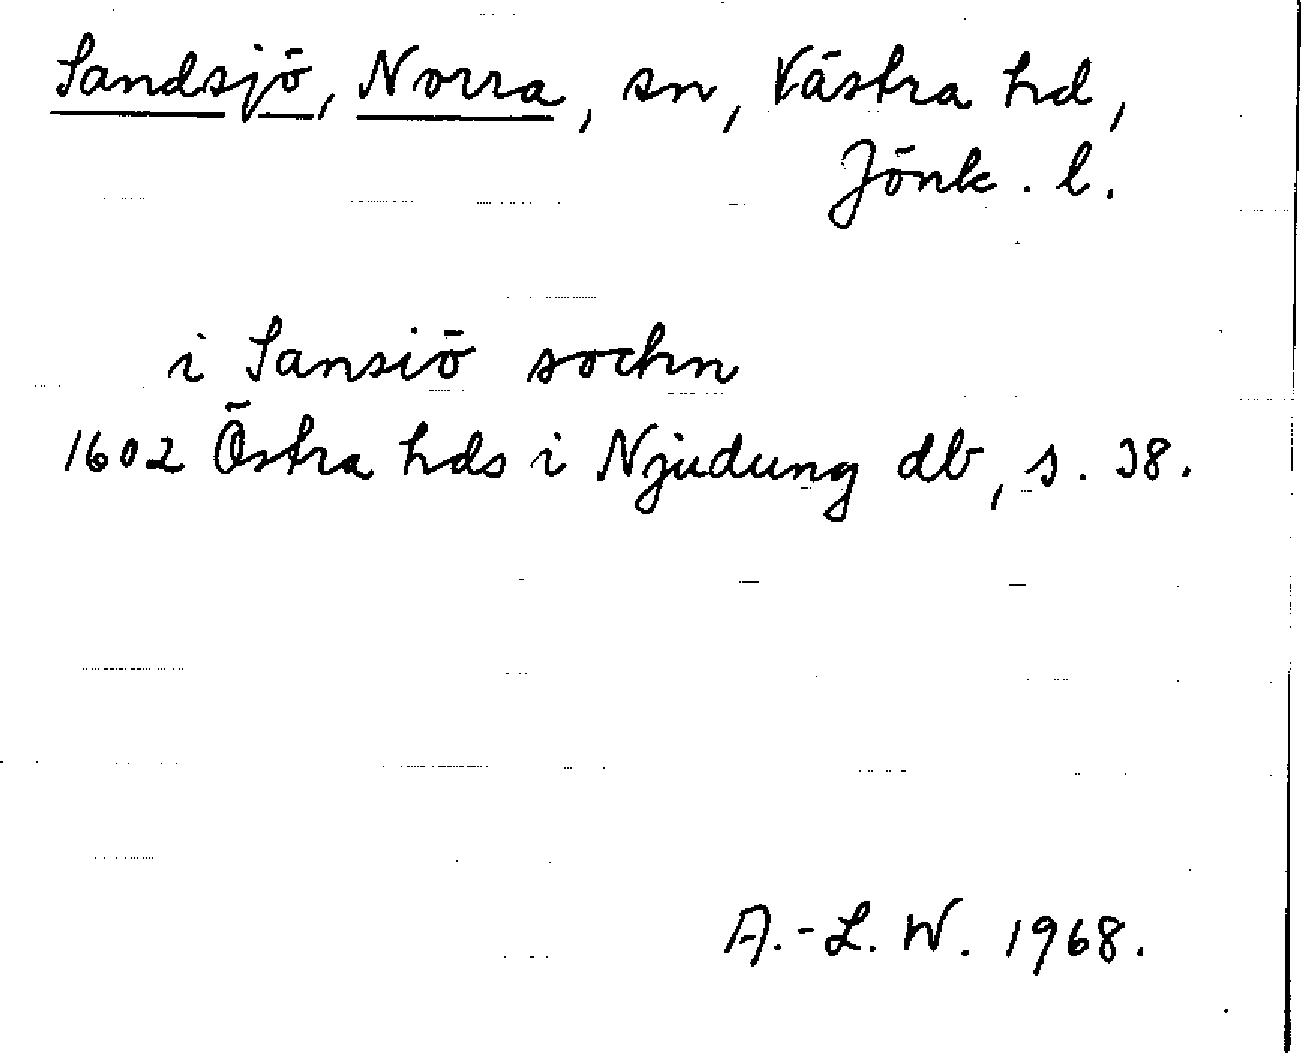 Sandsjö, Norra, sn, Västra hd,
Jönk. l.
i Sansiö sochn
1602 Östra hds i Njudung db, s. 38.
A.-L. W. 1968.